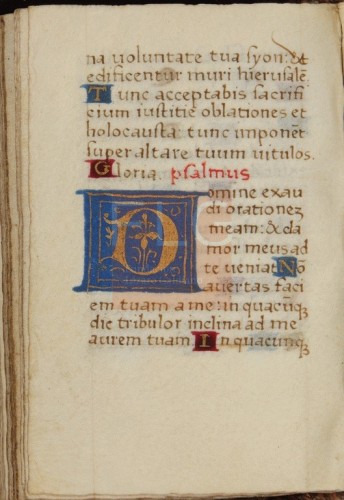 na voluntate tua syon: ut
edificentur muri hierusalē
Tunc acceptabis sacrifi
cium iustitie oblationes et
holocausta: tunc imponēt
super altare tuum vitulos.
Gloria. psalmus
Domine exau
di orationez
meam: & cla
mor meus ad
te veniat Nō
avertas faci
em tuam a me: in quacūqꝫ
die tribulor inclina ad me
aurem tuam. In quacunqꝫ